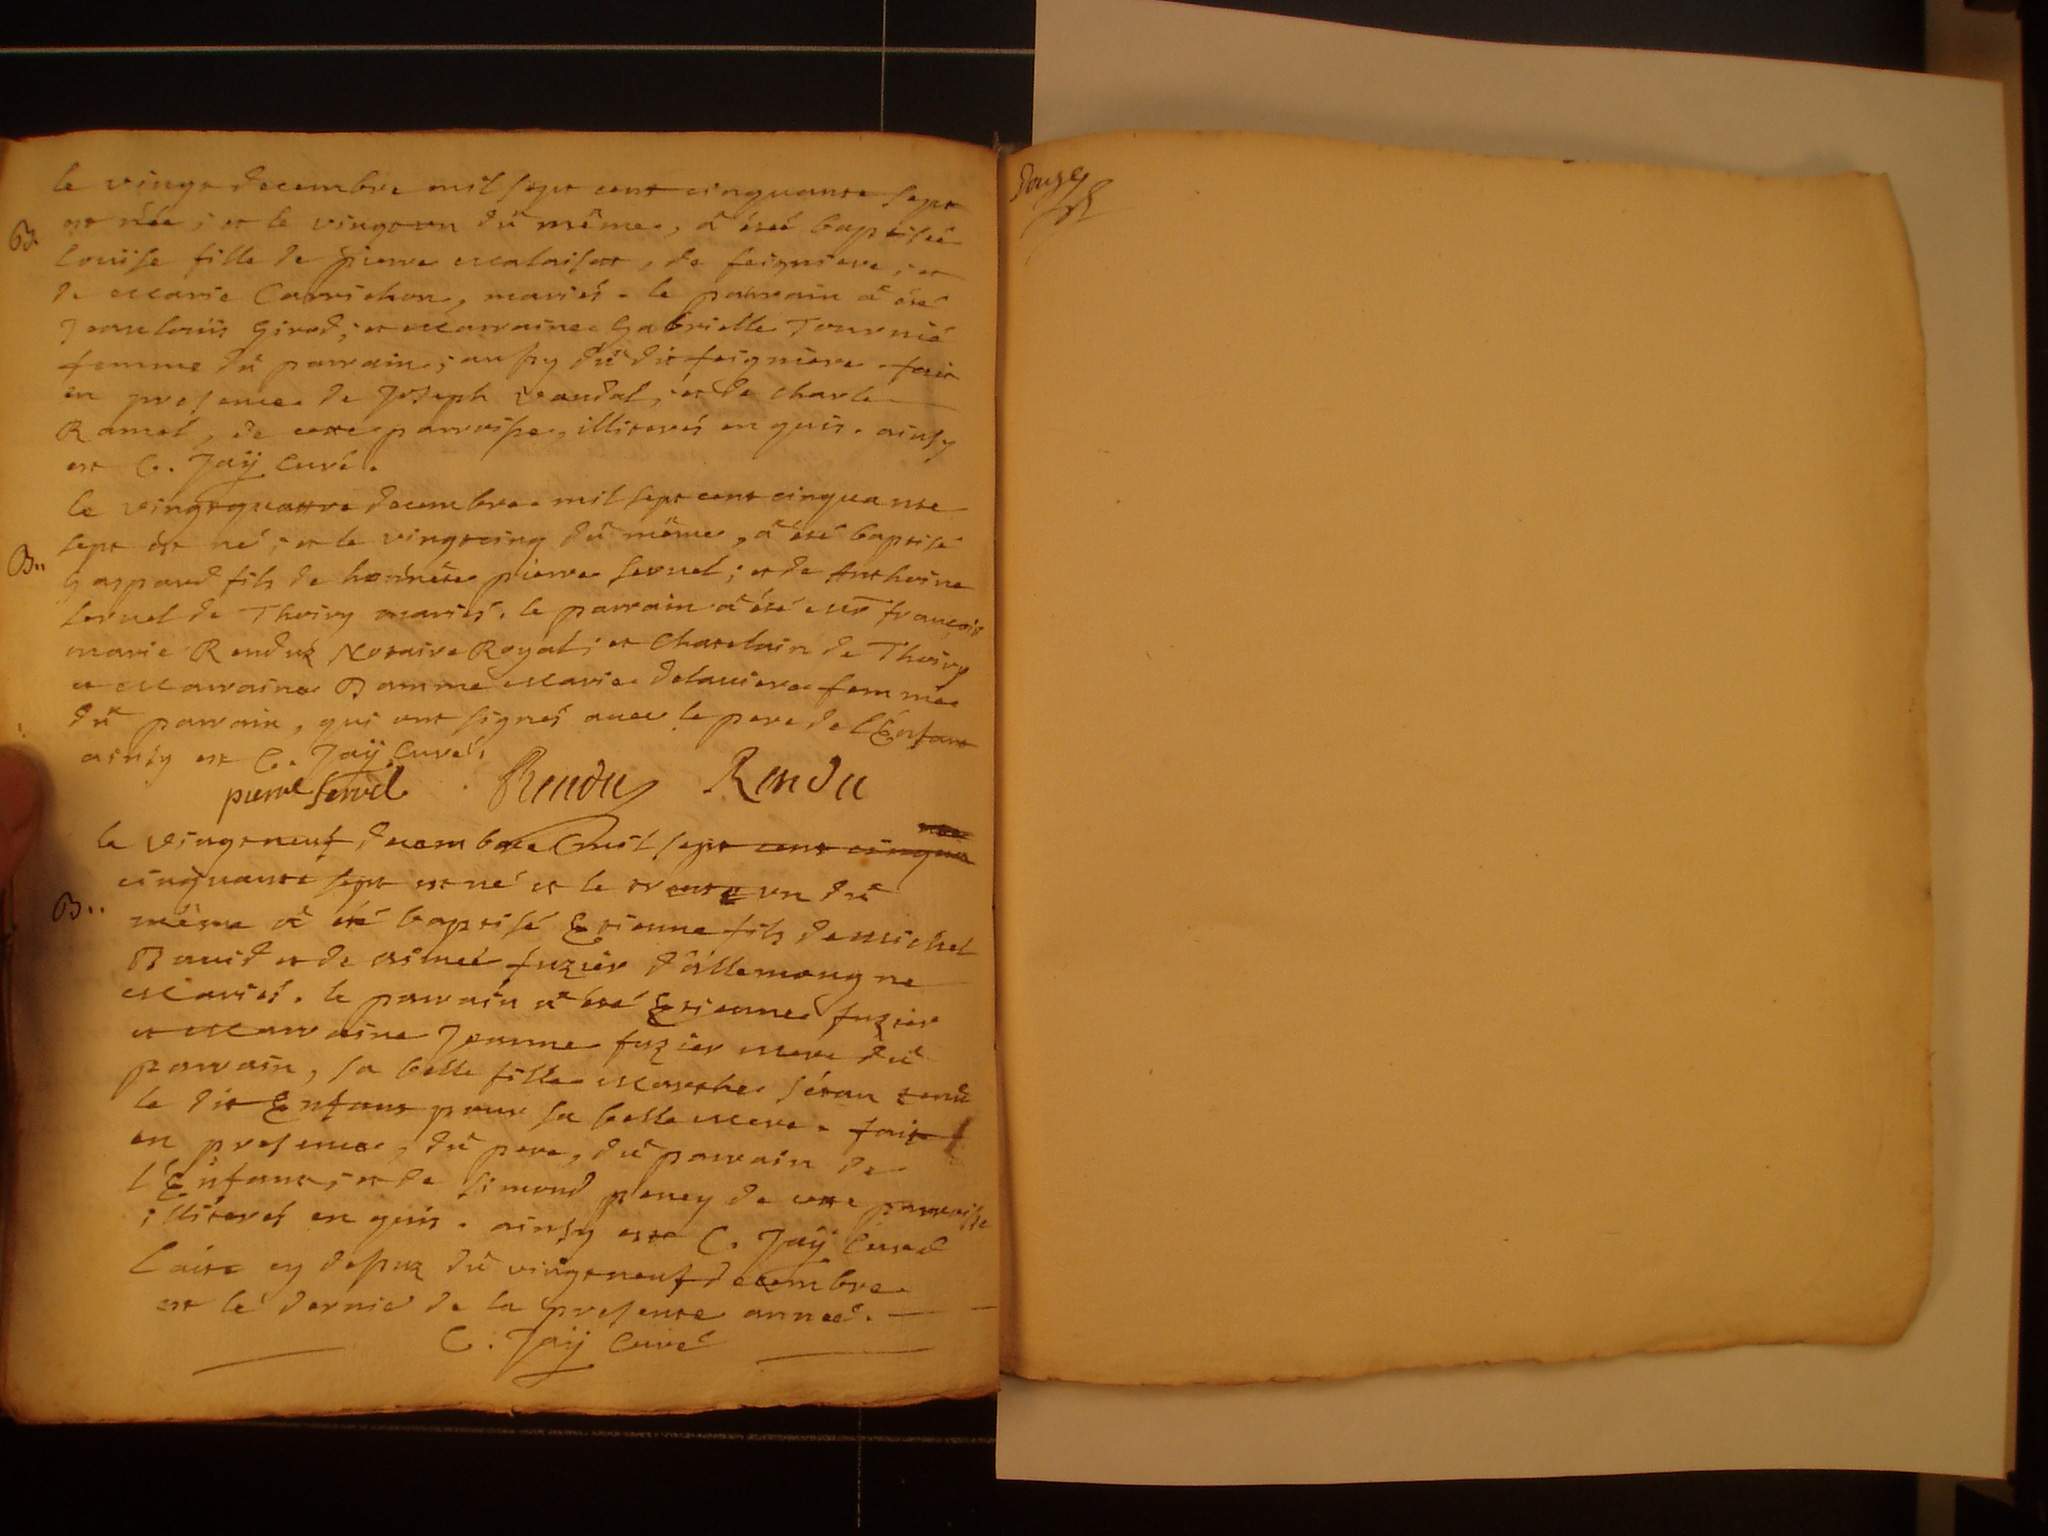 le vingt decembre mil sept cent cinquante sept
B. est née; et le vingtun dû même, â été baptisée
Louïse fille de pierre Malaisot, de feigniere; et
de Marie Carrichon, mariés. le parrain â été
Jeanlouïs Girod; et Marraine Gabrielle Tournié
femme dû parrain; aussy dû dit feigniere. fait
en presence de Joseph Vandal, et de charle
Ramel, de cette parroisse, illiterés enquis. ainsy
est C. Jaÿ Curé.
le vingtquattre decembre mil sept cent cinquante
B.. sept est né; et le vingtcinq dû même, â été baptisé
gaspard fils de honnête pierre servel; et de Anthoine
servel de Thoiry mariés. le parrain â été Mr françois
marie Renduz Notaire Royal; et Chatelain de Thoiry
et Marraine Damme Marie Delaviere femme
dû parrain, qui ont signés avec le pere de l'Enfant
ainsy est C. Jaÿ Curé.
pierre servel Rendu Rendu
le vingtneuf decembre mil sept cent cinqua
cinquante sept est né et le trente un dû
B.. même â été baptisé Etienne fils de Michel
David et de Aimée fuzier d'allemougne
Mariés. le parrain â été Etienne fuzier
et Marraine Jeanne fuzier mere dû
parrain, sa belle fille Marthe s'étan tenû
le dit Enfant pour sa belle mere. fait
en presence, dû pere, dû parrain de
l'Enfant, et de simond peney de cette parroisse
illiterés enquis. ainsy est C. Jaÿ Curé
L'aite cy dessuz dû vingtneuf decembre
est le dernié de la presente année.
C. Jaÿ Curé
Douze